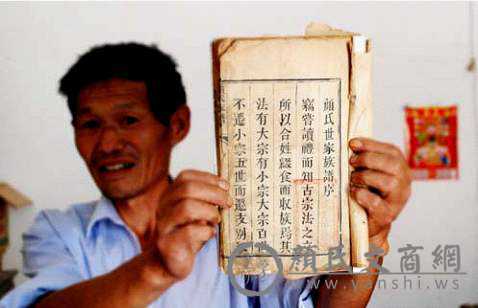 顏氏世家族譜序
竊嘗讀禮而知古宗法之
所以合姓綴食而收族焉其
法有大宗有小宗大宗百
不遷小宗五世而遷支別
顏氏文商網
www.yanshi.ws